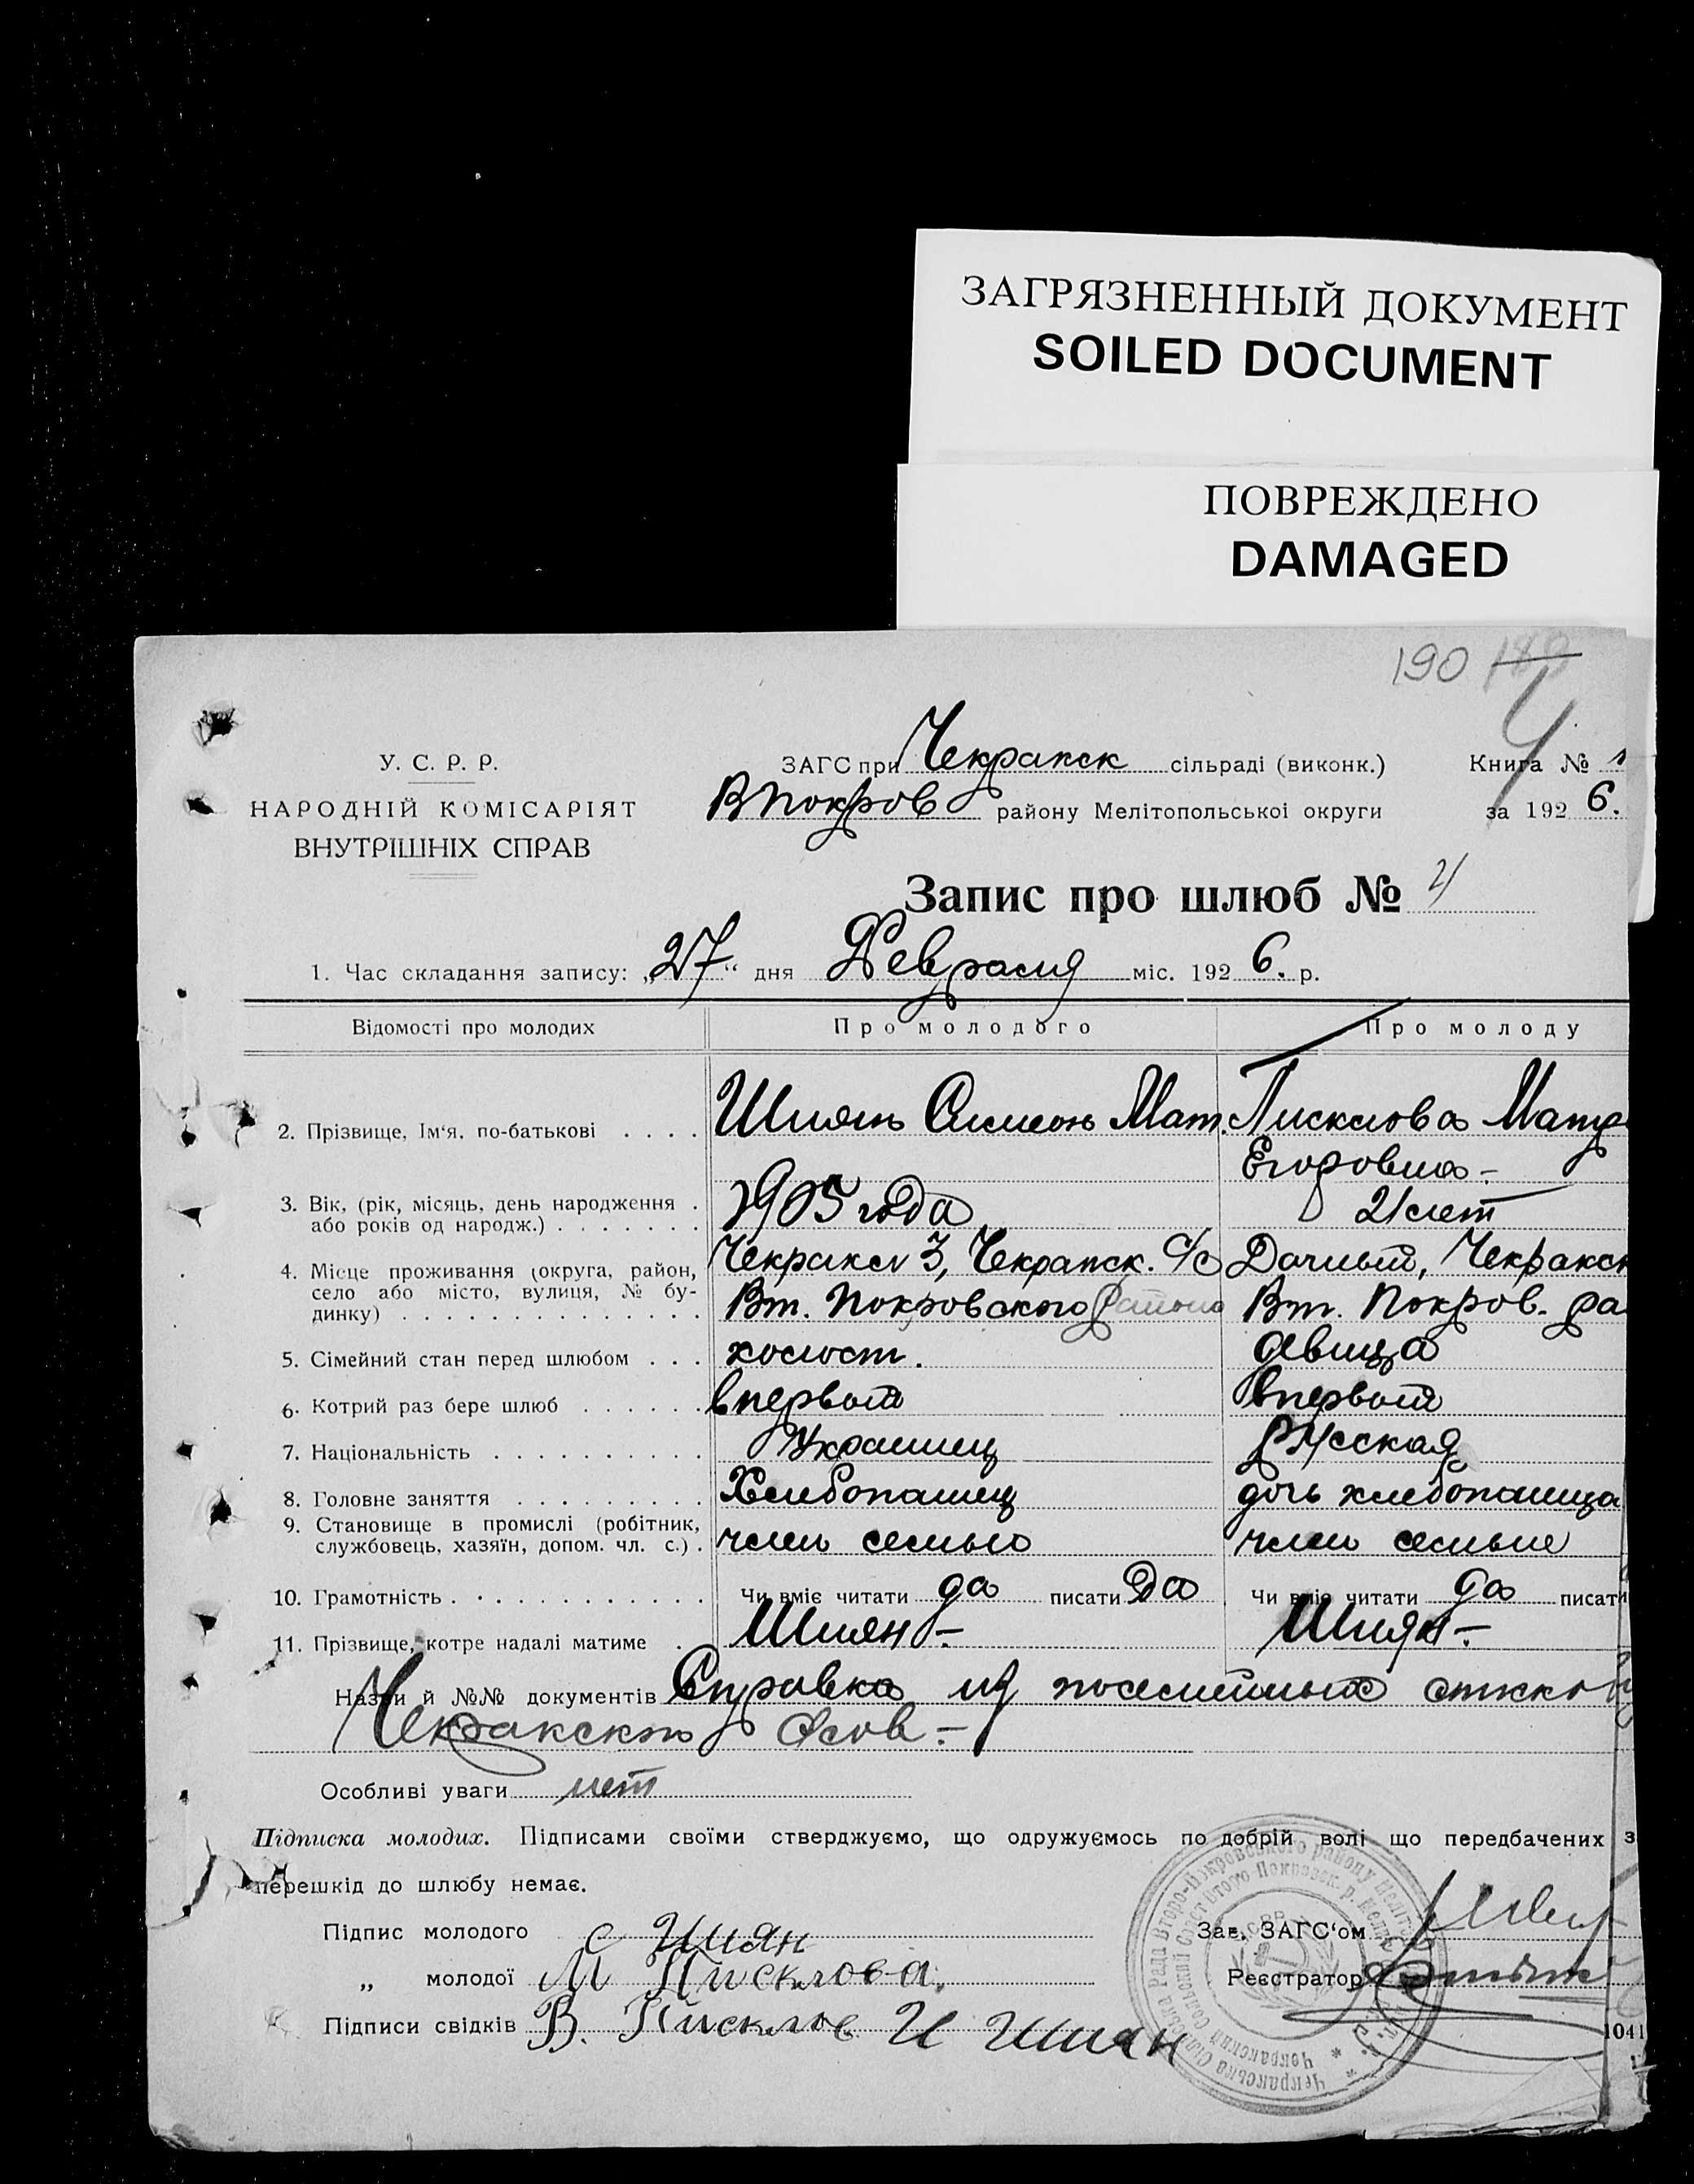 ЗАГРЯЗНЕННЫЙ ДОКУМЕНТ
SOILED DOCUMENT
ПОВРЕЖДЕНО
DAMAGED
190 189
4
У. С. Р. Р.
НАРОДНІЙ КОМІСАРІЯТ
ВНУТРІШНІХ СПРАВ
ЗАГС при Чекракск сільраді (виконк.) Книга № 1
ВПокров району Мелітопольскої округи за 1926.
Запис про шлюб № 4
1. Час складання запису: „27“ дня Февраля міс. 1926. р.
Відомості про молодих Про молодого Про молоду
2. Прізвище, Ім‘я, по-батькові Шиянъ Симеонъ Мат. Писклова Матр
Егоровна-
3. Вік, (рік, місяць, день народження 1905 года 21 лет
або років од народж.)
4. Місце проживання (округа, район, Чекракск 3, Чекракск. С/С Дачный, Чекракск
село або місто, вулиця, № бу-
динку) Вт. Покровского Района Вт. Покров. ра
5. Сімейний стан перед шлюбом холост. девица
6. Котрий раз бере шлюб впервой впервой
7. Національність Украинец Русская
8. Головне заняття Хлебопашец дочь хлебопашца
9. Становище в промислі (робітник, член семьи член семьи
службовець, хазяїн, допом. чл. с.)
10. Грамотність Чи вміє читати да писати да Чи вміє читати да писати
11. Прізвище, котре надалі матиме Шиян- Шиян-
Назви й №№ документів Справка из посемейных
Чекракск
Особливі уваги нет
Підписка молодих. Підписами своїми стверджуємо, що одружуємось по добрій волі що передбачених з
перешкід до шлюбу немає.
Підпис молодого С Шиян Зав. ЗАГС‘ом
„ молодої М Писклова. Реєстратор
Підписи свідків В. Писклов И Шиян
1041